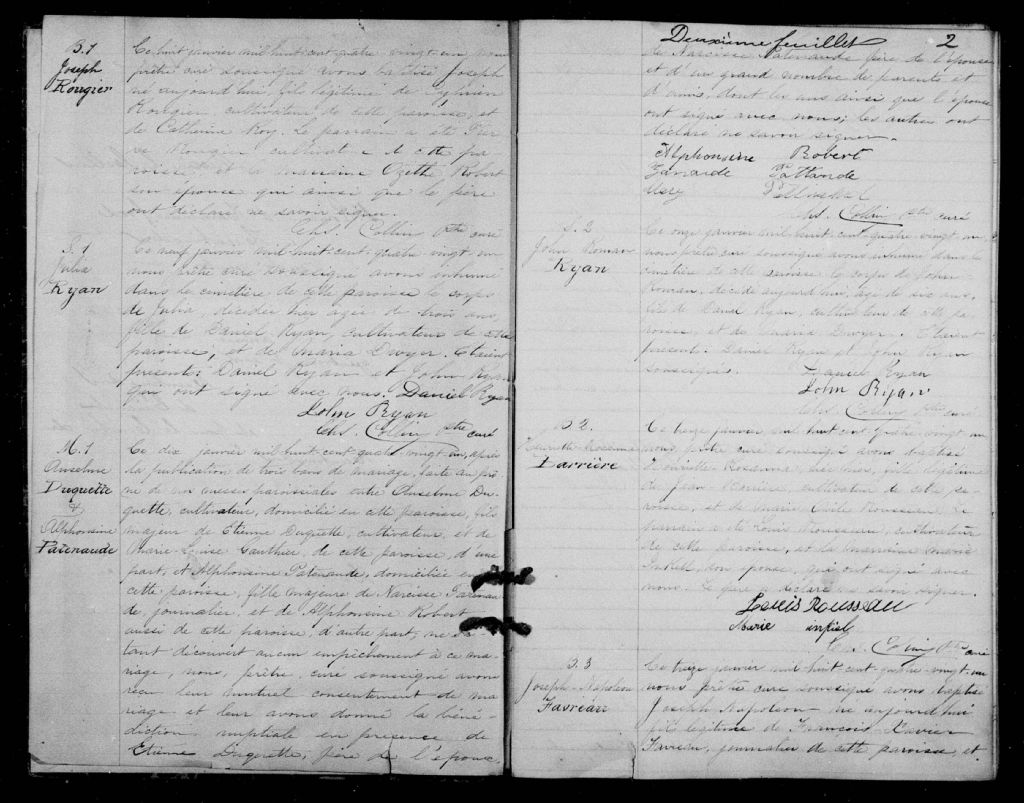 B.1
Joseph
Rougier
Ce huit janvier mil huit cent quatre-vingt-un nous
prêtre curé soussigné avons baptisé Joseph
né aujourd'hui, fils légitime de
Rougier cultivateur de cette paroisse, et
de Catherine Roy. Le parrain a été Pier-
re Rougier cultivateur de cette pa-
roisse et la marraine Ozette Robert
son épouse qui ainsi que le père
ont déclaré ne savoir signer.
Chs. Collin Ptre curé
S.1
Julia
Ryan
Ce neuf janvier mil-huit-cent-quatre-vingt-un
nous prêtre curé soussigné avons inhumé
dans le cimetière de cette paroisse le corps
de Julia, décédée hier agée de trois ans,
fille de Daniel Ryan, cultivateur de cette
paroisse, et de Maria Dwyer. Etaient
présents: Daniel Ryan et John Ryan
qui ont signé avec nous. Daniel Ryan
John Ryan
Chs. Collin Ptre curé
M.1
Anselme
Duquette
&
Alphonsine
Patenaude
Ce dix janvier mil huit cent quatre vingt-un, après
la publication de trois bans de mariage, faite au prô-
ne de nos messes paroissiales entre Anselme Du-
quette, cultivateur, domicilié en cette paroisse, fils
majeur de Etienne Duquette, cultivateur, et de
Marie-Louise Gauthier, de cette paroisse, d'une
part, et Alphonsine Patenaude, domiciliée en
cette paroisse, fille majeure de Narcisse Patenau-
de, journalier, et de Alphonsine Robert
aussi de cette paroisse, d'autre part, ne s'é-
tant découvert aucun empêchement à ce ma-
riage, nous, prêtre, curé soussigné avons
reçu leur mutuel consentement de ma-
riage et leur avons donné la béné-
diction nuptiale en présence de
Etienne Duquette, père de l'époux,
Deuxième feuillet 2
de Narcisse Patenaude père de l'épouse
et d'un grand nombre de parents et
d'amis, dont les uns ainsi que l'épouse
ont signé avec nous; les autres ont
déclaré ne savoir signer.
Alphonsine Robert
Chs. Collin Ptre curé
S.2
John
Ryan
Ce onze janvier mil huit cent-quatre vingt un
nous prêtre curé soussigné avons inhumé dans le
cimetière de cette paroisse le corps de John
décédé aujourd'hui, agé de six ans,
fils de Daniel Ryan, cultivateur de cette pa-
roisse, et de Maria Dwyer. Etaient
présents. Daniel Ryan et John Ryan
soussignés.
Daniel Ryan
John Ryan
Chs. Collin Ptre curé
B.2.
Rosanna
Larrière
Ce treize janvier mil huit cent quatre vingt un
nous, prêtre curé soussigné avons baptisé
Rosanna, née hier, fille légitime
de Jean cultivateur de cette pa-
roisse, et de Marie Rousseau. Le
parrain a été Louis Rousseau, cultivateur
de cette paroisse, et la marraine Marie
son épouse, qui ont signé avec
nous. Le père a déclaré ne savoir signer.
Louis Rousseau
Marie
Chs. Collin Ptre curé
B.3
Joseph-Napoléon
Favreau
Ce treize janvier mil huit cent quatre vingt-un
nous prêtre curé soussigné avons baptisé
Joseph Napoléon né aujourd'hui
fils légitime de François-Xavier
Favreau, journalier de cette paroisse, et